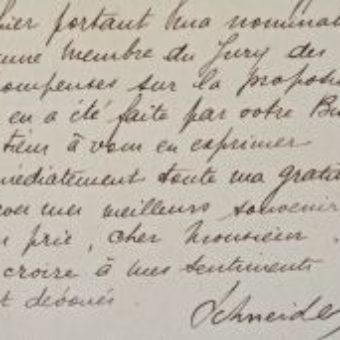 hier portant ma nomina
membre du Jury des
ompenses sur la propos
en a été faite par votre Bu
tiens à vous en exprimer
médiatement toute ma grati
mes meilleurs souvenir
prie, cher Monsieur
croire à mes sentiments
t dévoués.
Schneide